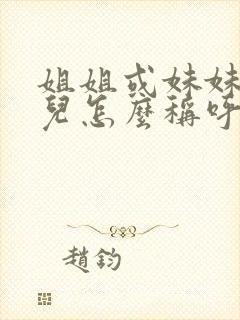 姐姐或妹妹
兒怎麼稱呼
趙鈞